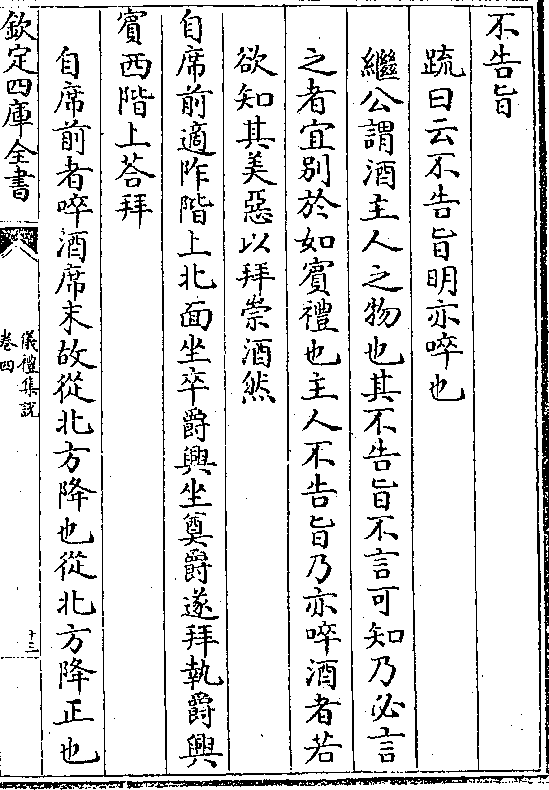 不告旨
疏曰云不告旨明亦啐也
繼公謂酒主人之物也其不告旨不言可知乃必言
之者宜别於如賓禮也主人不告旨乃亦啐酒者若
欲知其美惡以拜崇酒然
自席前適阼階上北面坐卒爵興坐奠爵遂拜執爵興
賓西階上荅拜
自席前者啐酒席末故從北方降也從北方降正也
欽定四庫全書
儀禮集說
卷四
十三